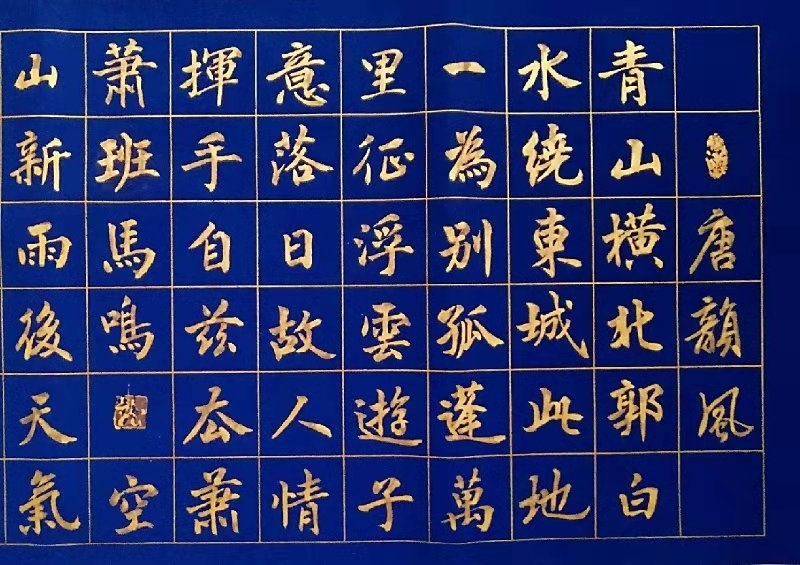 唐韻風
青山横北郭白
水繞東城此地
一為别孤蓬萬
里征浮雲遊子
意落日故人情
揮手自茲去蕭
蕭班馬鳴空
山新雨後天氣